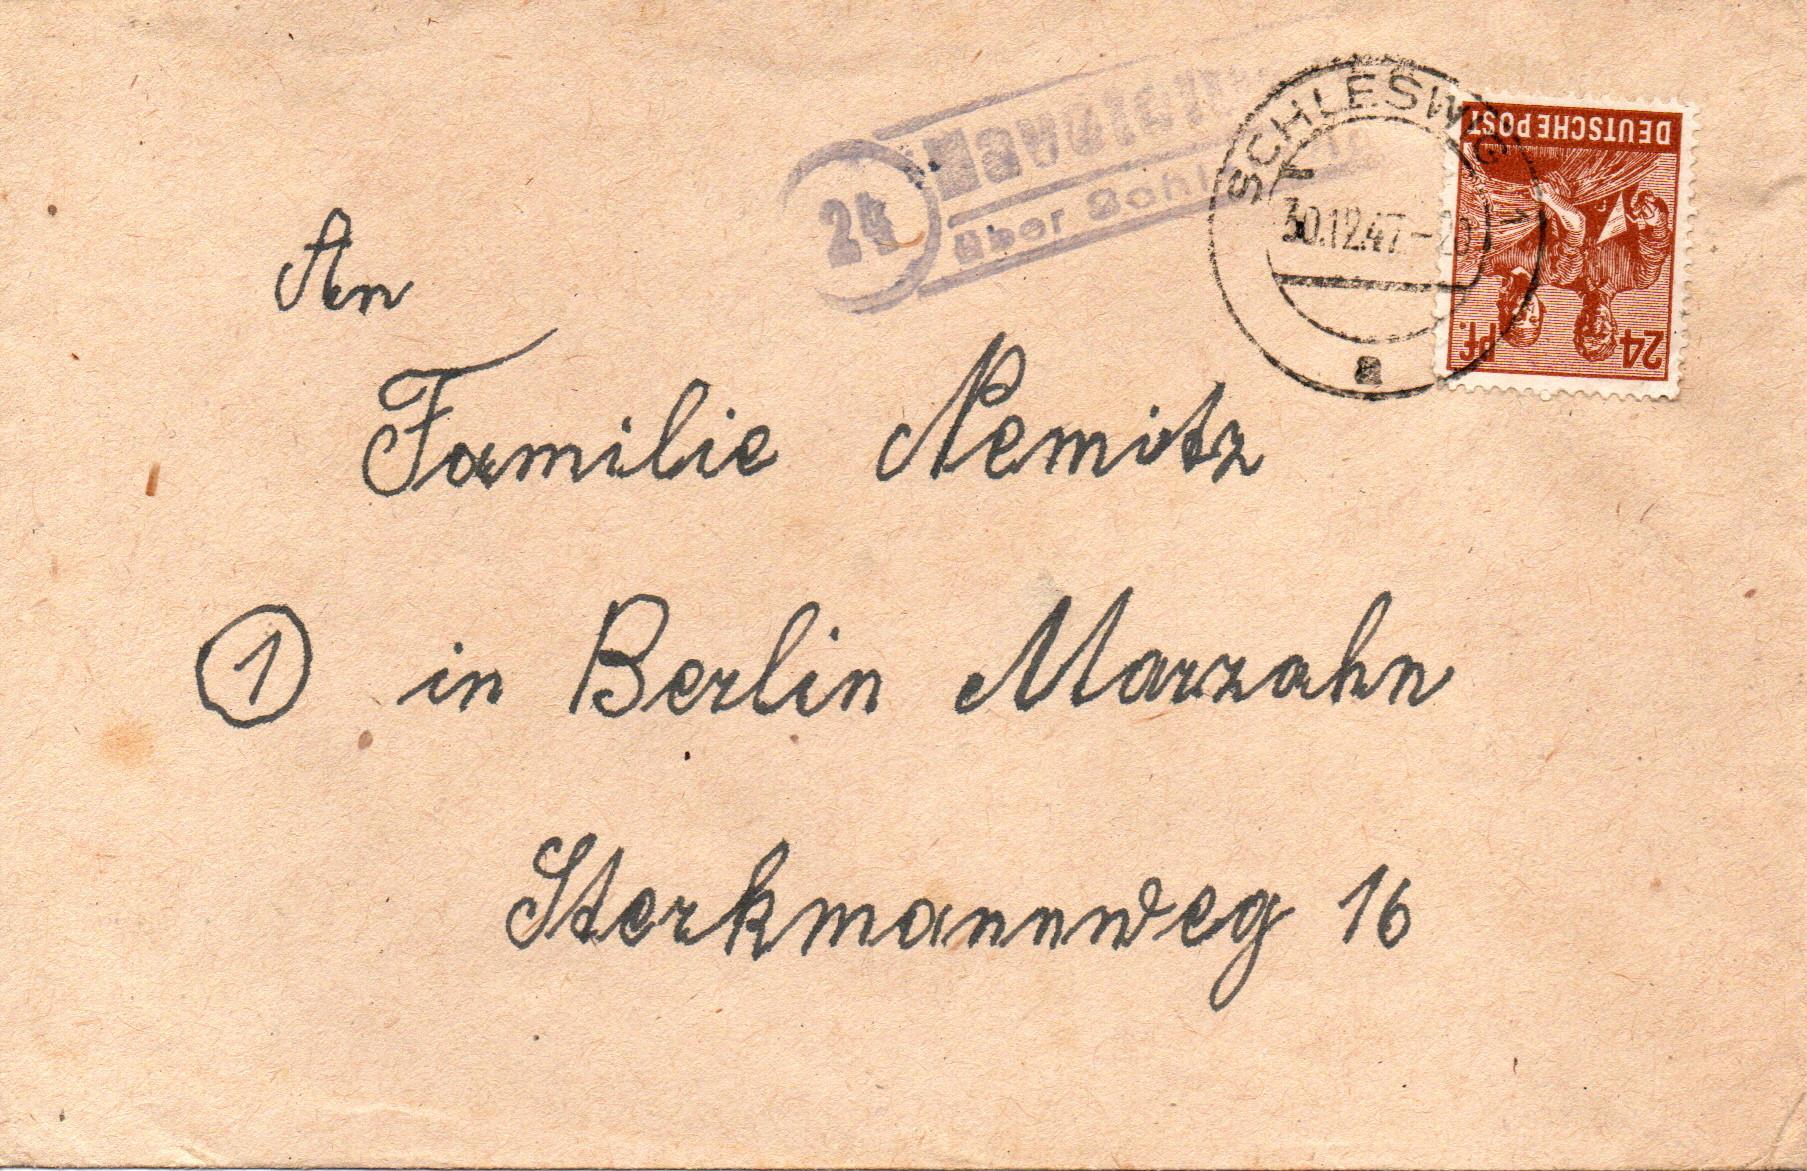 24
über
SCHLESWIG 1
30.12.47
a
DEUTSCHE POST
24 Pf.
An
Familie Nemitz
1 in Berlin Marzahn
Sterkmannweg 16